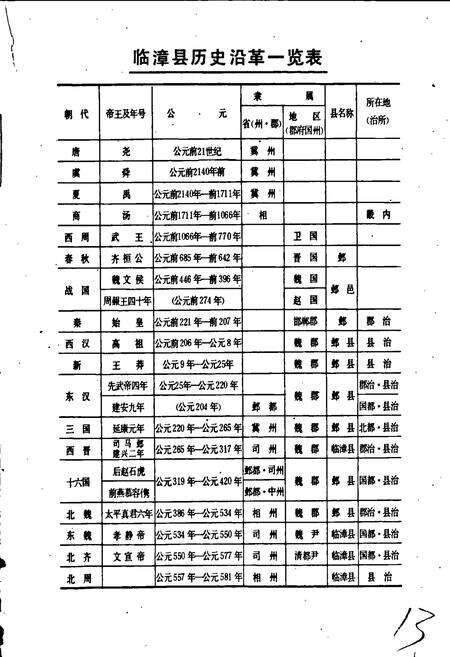 临漳县历史沿革一览表
朝代 帝王及年号 公元 隶属 县名称 所在地(治所)
省(州·郡) 地区(郡府国州)
唐 尧 公元前21世纪 冀州
虞 舜 公元前2140年前 冀州
夏 禹 公元前2140年—前1711年 冀州
商 汤 公元前1711年—前1066年 相 畿内
西周 武王 公元前1066年—前770年 卫国
春秋 齐桓公 公元前685年—前642年 晋国 邺
战国 魏文侯 公元前446年—前396年 魏国 邺邑
周赧王四十年 (公元前274年) 赵国
秦 始皇 公元前221年—前207年 邯郸郡 邺 郡治
西汉 高祖 公元前206年—公元8年 魏郡 邺县 县治
新 王莽 公元9年—公元25年 魏郡 邺县 县治
东汉 先武帝四年 公元25年—公元220年 魏郡 邺县 郡治·县治
建安九年 (公元204年) 邺都 国都·县治
三国 延康元年 公元220年—公元265年 冀州 魏郡 邺县 北都·县治
西晋 司马邺建兴二年 公元265年—公元317年 司州 魏郡 临漳县 郡治·县治
十六国 后赵石虎 公元319年—公元420年 邺都·司州 魏郡 邺县 国都·县治
前燕慕容儁 邺都·中州
北魏 太平真君六年 公元386年—公元534年 相州 魏郡 邺县 郡治·县治
东魏 孝静帝 公元534年—公元550年 司州 魏尹 临漳县 国都·县治
北齐 文宣帝 公元550年—公元577年 司州 清都尹 临漳县 国都·县治
北周 公元557年—公元581年 相州 临漳县 县治
13